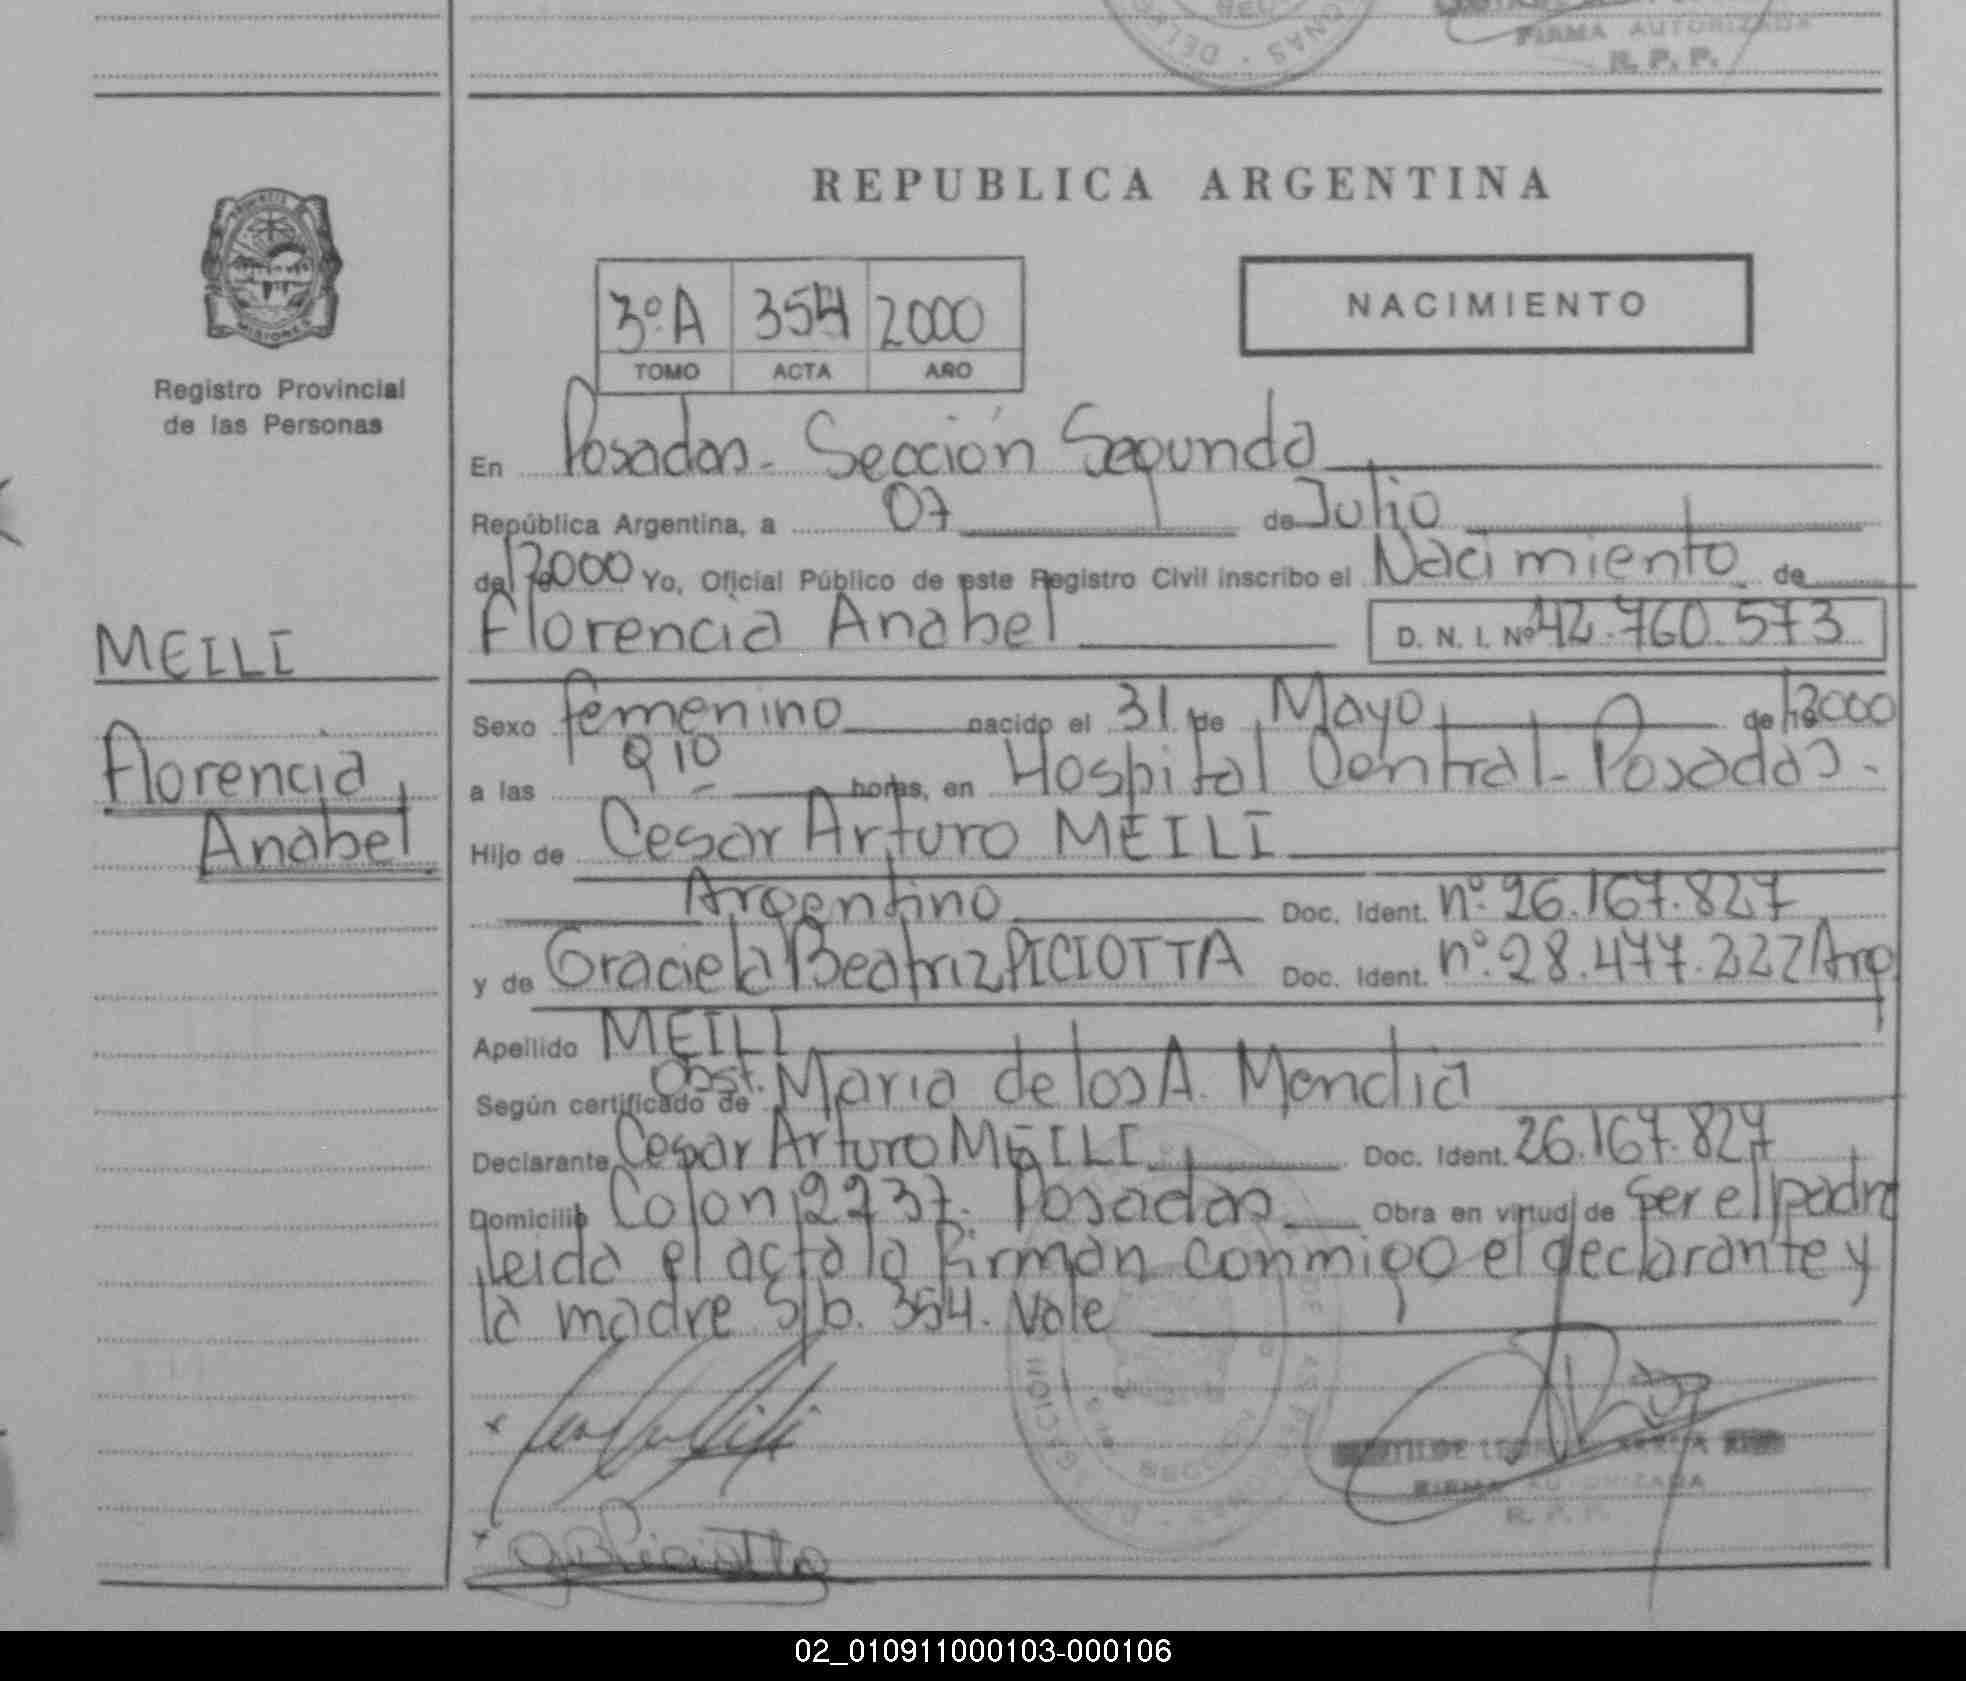 FIRMA AUTORIZADA
R. P. P.
REPUBLICA ARGENTINA
NACIMIENTO
3º A 354 2000
TOMO ACTA AÑO
MISIONES
Registro Provincial
de las Personas
En Posadas - Sección Segunda
República Argentina, a 07 de Julio
de 2000 Yo, Oficial Público de este Registro Civil inscribo el Nacimiento de
Florencia Anabel D. N. I. Nº 42.760.573
MEILI
Florencia
Anabel
Sexo femenino nacido el 31 de Mayo de 2000
a las 9 10 horas, en Hospital Central - Posadas -
Hijo de Cesar Arturo MEILI
Argentino Doc. Ident. nº 26.167.827
y de Graciela Beatriz PICIOTTA Doc. Ident. nº 28.477.222 Arg
Apellido MEILI
Según certificado de Obst. Maria de los A. Mendia
Declarante Cesar Arturo MEILI Doc. Ident. 26.167.827
Domicilio Colon 2237. Posadas Obra en virtud de ser el padre
leida el acta la firman conmigo el declarante y
la madre S/b. 354. Vale
FIRMA AUTORIZADA
R. P. P.
02_010911000103-000106